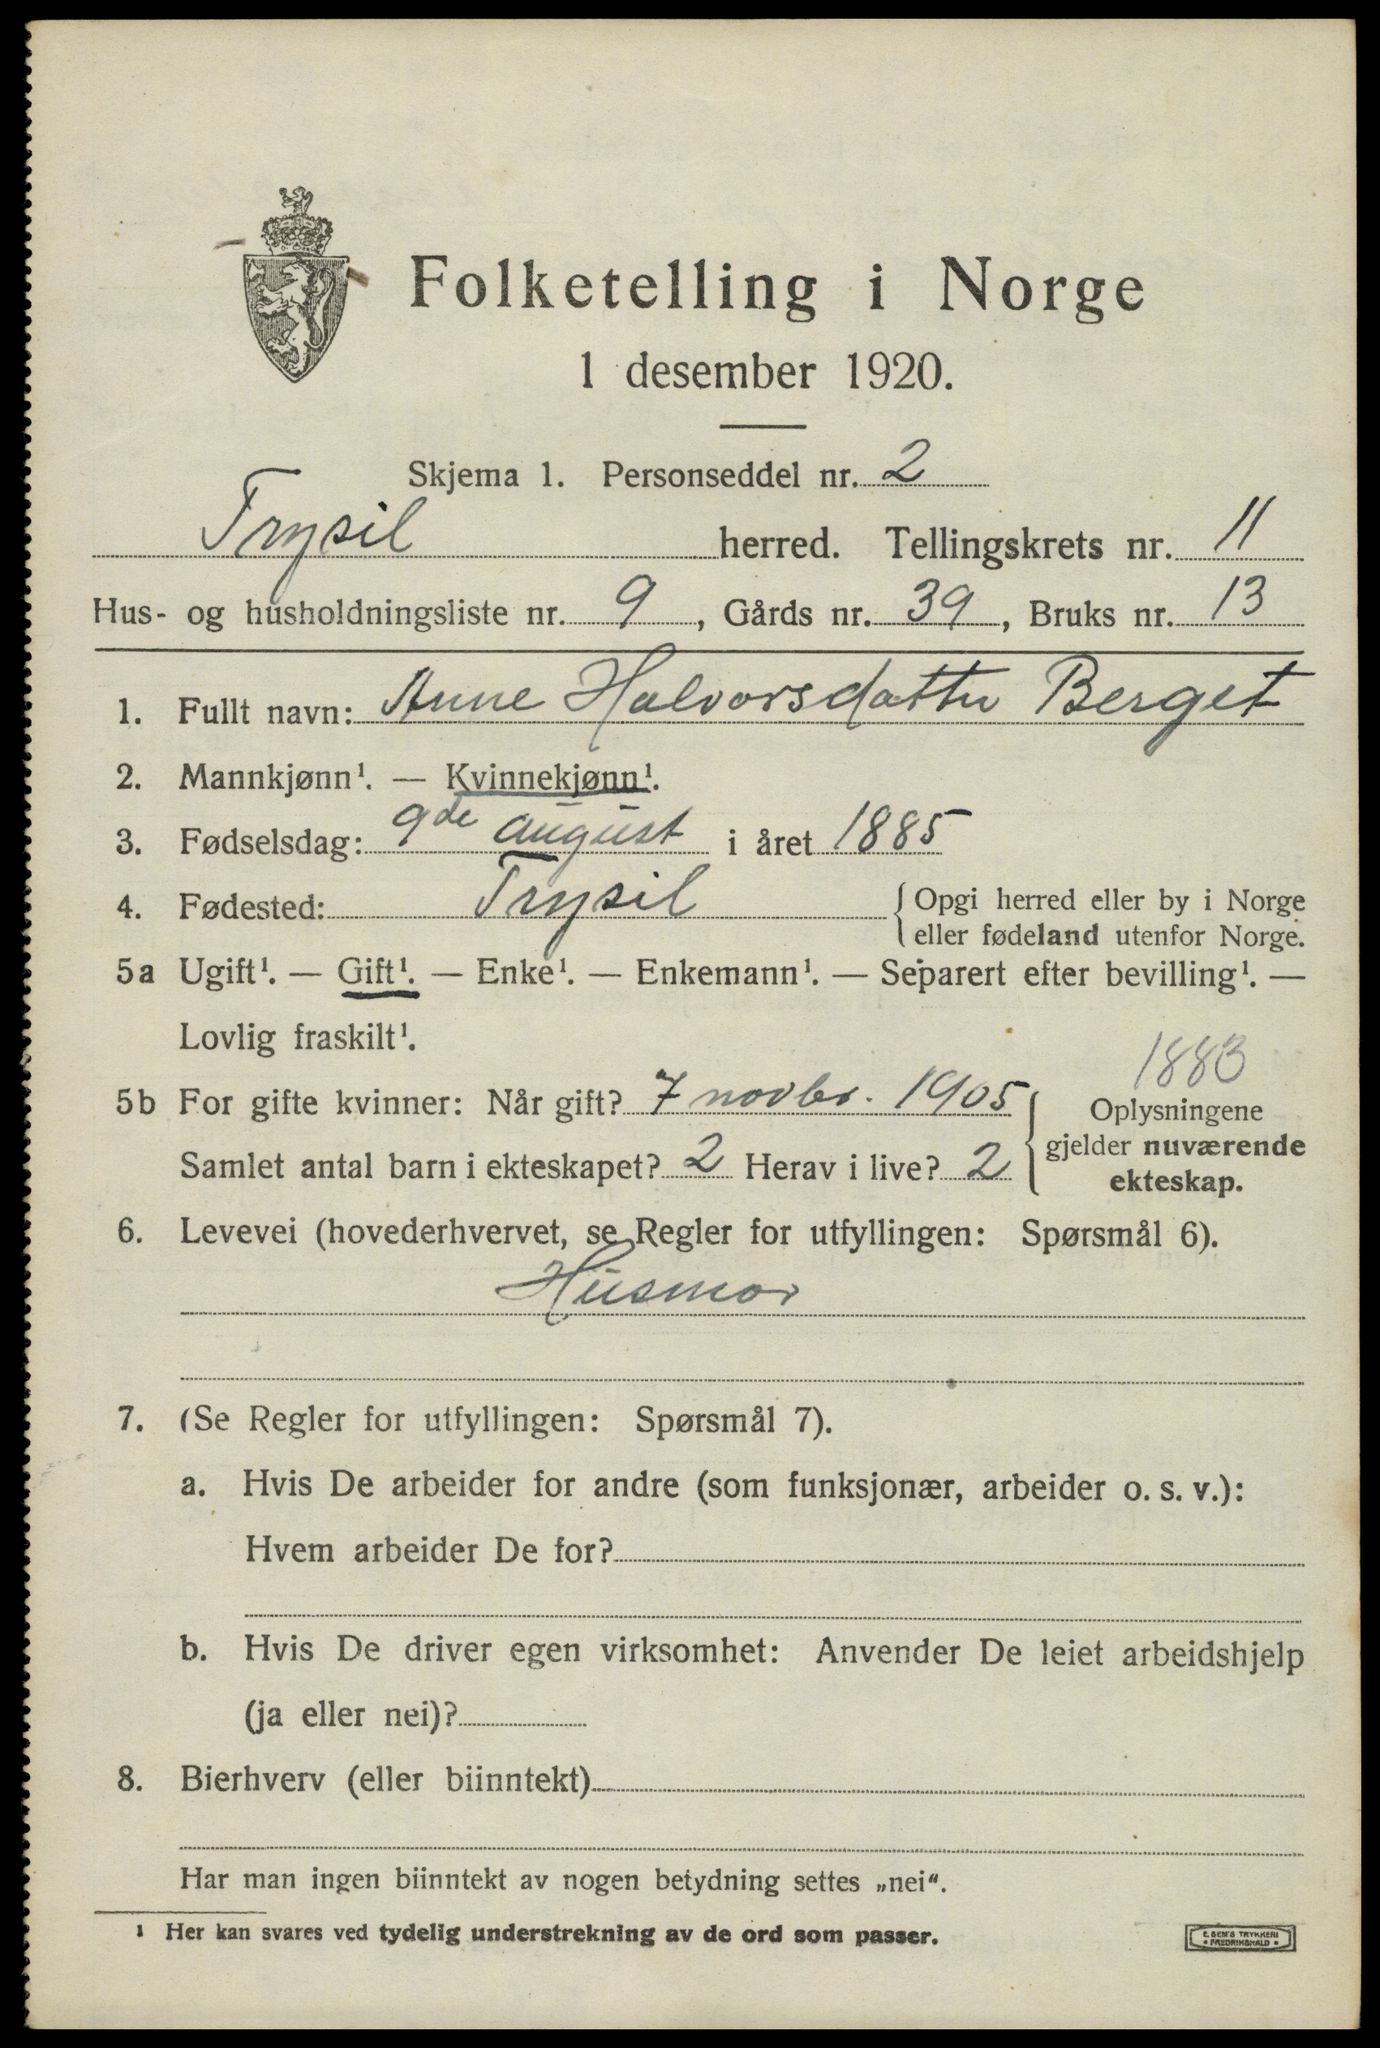 Folketelling i Norge
1 desember 1920.
Skjema 1. Personseddel nr. 2
Trysil herred. Tellingskrets nr. 11
Hus- og husholdningsliste nr. 9, Gårds nr. 39, Bruks nr. 13
1. Fullt navn: Anne Halvorsdatter Berget
2. Mannkjønn¹. — Kvinnekjønn¹.
3. Fødselsdag: 9de august i året 1885
4. Fødested: Trysil { Opgi herred eller by i Norge
eller fødeland utenfor Norge.
5a Ugift¹. — Gift¹. — Enke¹. — Enkemann¹. — Separert efter bevilling¹. —
Lovlig fraskilt¹.
1883
5b For gifte kvinner: Når gift? 7 novbr. 1905 { Oplysningene
gjelder nuværende
Samlet antal barn i ekteskapet? 2 Herav i live? 2
ekteskap.
6. Levevei (hovederhvervet, se Regler for utfyllingen: Spørsmål 6).
Husmor
7. (Se Regler for utfyllingen: Spørsmål 7).
a. Hvis De arbeider for andre (som funksjonær, arbeider o. s. v.):
Hvem arbeider De for?
b. Hvis De driver egen virksomhet: Anvender De leiet arbeidshjelp
(ja eller nei)?
8. Bierhverv (eller biinntekt)
Har man ingen biinntekt av nogen betydning settes „nei“.
¹ Her kan svares ved tydelig understrekning av de ord som passer.
E. SEM'S TRYKKERI
• FREDRIKSHALD •